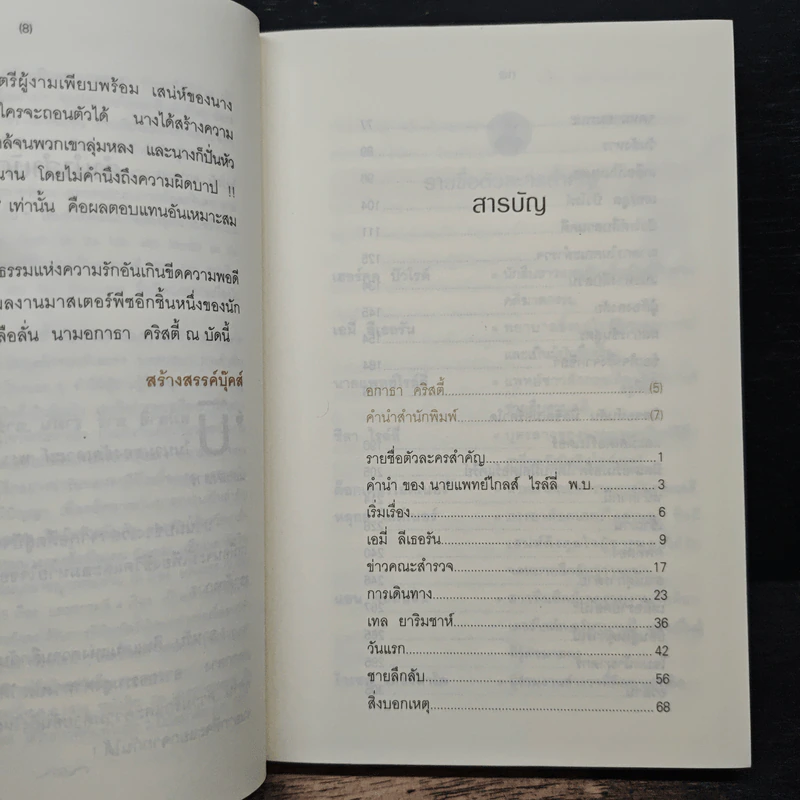 (8)
ตรีผู้งามเพียบพร้อม เสน่ห์ของนาง
ใครจะถอนตัวได้ นางได้สร้างความ
ล้จนพวกเขาลุ่มหลง และนางก็ปั่นหัว
นาน โดยไม่คำนึงถึงความผิดบาป !!
เท่านั้น คือผลตอบแทนอันเหมาะสม
ธรรมแห่งความรักอันเกินขีดความพอดี
ผลงานมาสเตอร์พีซอีกชิ้นหนึ่งของนัก
ลือลั่น นามอกาธา คริสตี้ ณ บัดนี้
สร้างสรรค์บุ๊คส์
สารบัญ
อกาธา คริสตี้ (5)
คำนำสำนักพิมพ์ (7)
รายชื่อตัวละครสำคัญ 1
คำนำ ของ นายแพทย์ไกลส์ ไรล์ลี่ พ.บ. 3
เริ่มเรื่อง 6
เอมี่ ลีเธอรัน 9
ข่าวคณะสำรวจ 17
การเดินทาง 23
เทล ยาริมชาห์ 36
วันแรก 42
ชายลึกลับ 56
สิ่งบอกเหตุ 68